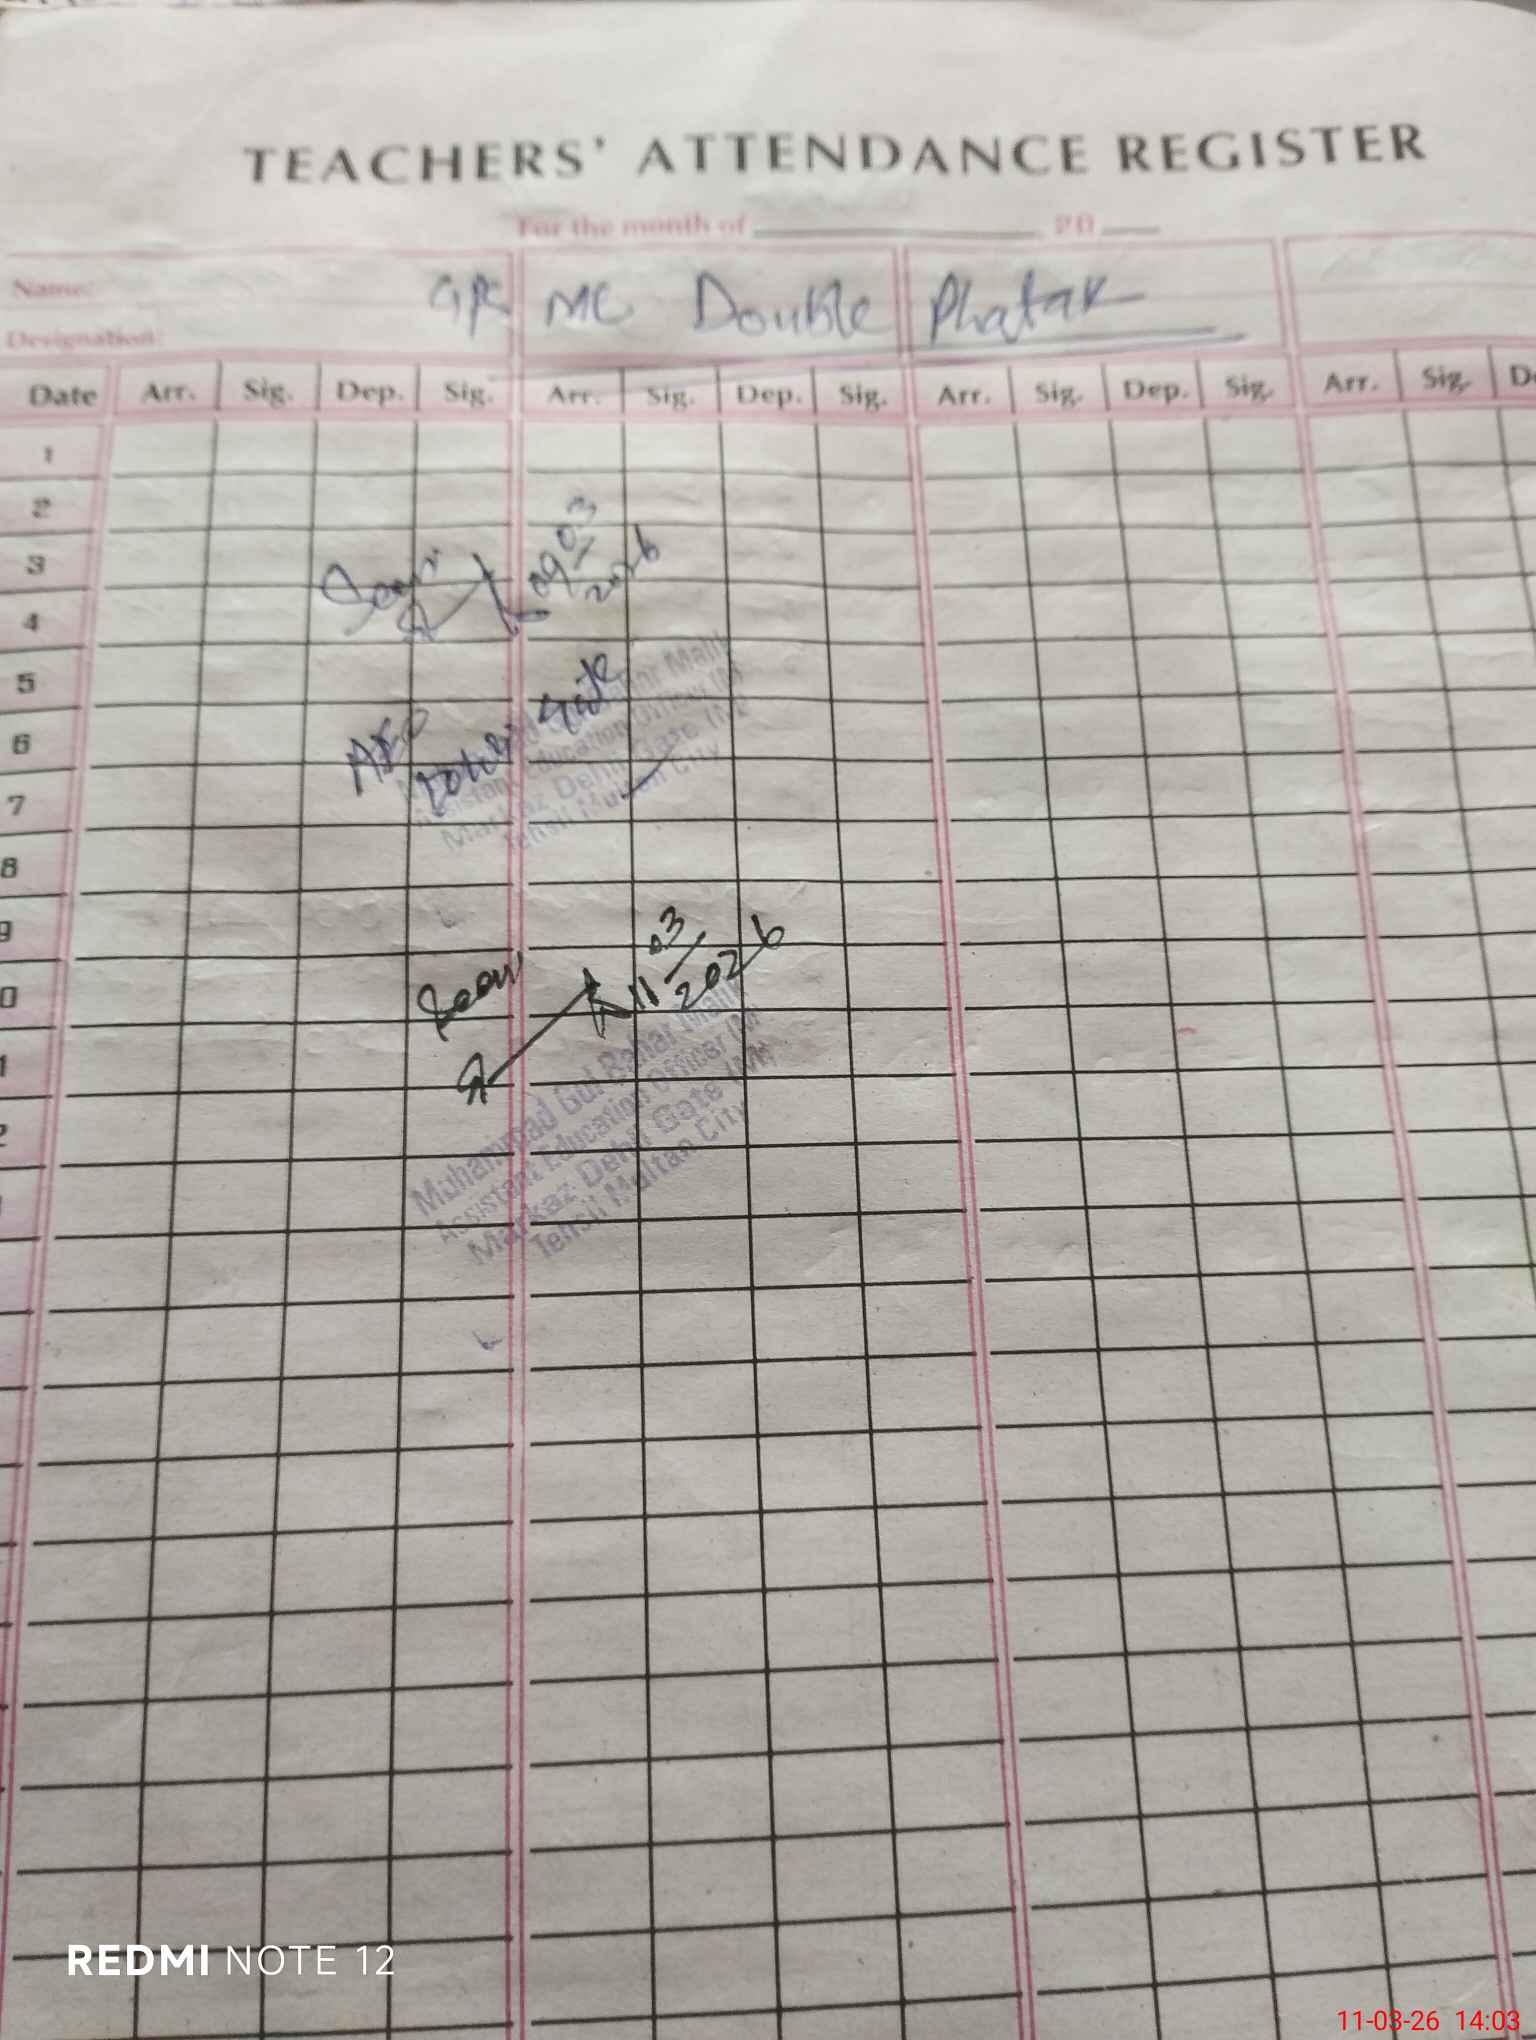 TEACHERS' ATTENDANCE REGISTER
For the month of 20
Name:
Designation:
MC Double Phatak
Date Arr. Sig. Dep. Sig. Arr. Sig. Dep. Sig. Arr. Sig. Dep. Sig. Arr. Sig. De
1
2
3
Seen 09 03
2026
4
5
6
AEO Gate
Malik
Assistant Education Officer (M
Markaz Dehli Gate (M
Tehsil Multan City
7
8
9
0
Seen 11 03
2026
1
Muhammad Gul Malik
Assistant Education Officer (M
Markaz Dehli Gate (M
Tehsil Multan City
2
REDMI NOTE 12
11-03-26 14:03